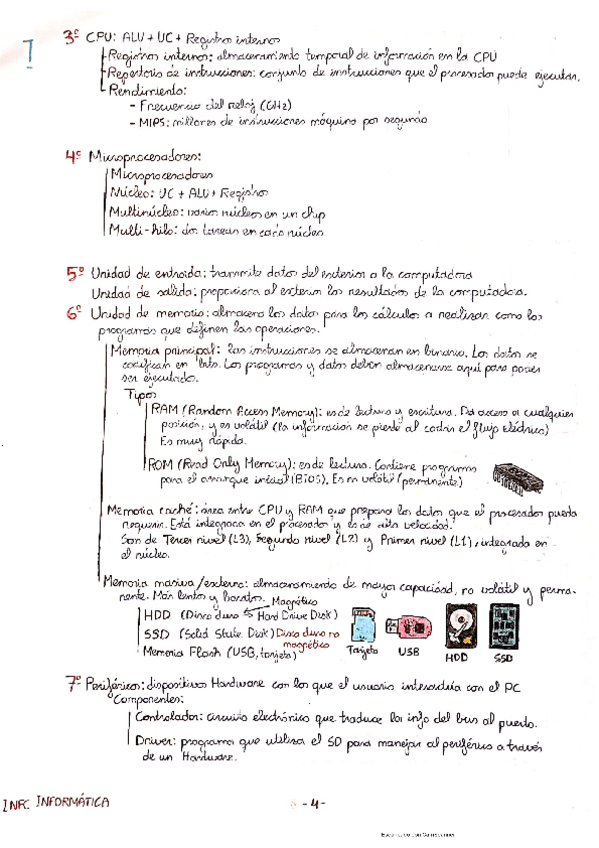 I
3º CPU: ALU + UC + Registros internos
Registros internos: almacenamiento temporal de información en la CPU
Repertorio de instrucciones: conjunto de instrucciones que el procesador puede ejecutar.
Rendimiento:
- Frecuencia del reloj (GHz)
- MIPS: millones de instrucciones máquina por segundo
4º Microprocesadores:
Microprocesadores
Núcleo: UC + ALU + Registros
Multinúcleo: varios núcleos en un chip
Multi-hilo: dos tareas en cada núcleo
5º Unidad de entrada: transmite datos del exterior a la computadora
Unidad de salida: proporciona al exterior los resultados de la computadora.
6º Unidad de memoria: almacena los datos para los cálculos a realizar como los
programas que definen las operaciones.
Memoria principal: las instrucciones se almacenan en binario. Los datos se
codifican en bits. Los programas y datos deben almacenarse aquí para poder
ser ejecutados.
Tipos
RAM (Random Access Memory): es de lectura y escritura. Da acceso a cualquier
posición, y es volátil (la información se pierde al cortar el flujo eléctrico)
Es muy rápida.
ROM (Read Only Memory): es de lectura. Contiene programas
para el arranque inicial (BIOS). Es no volátil (permanente)
Memoria caché: área entre CPU y RAM que prepara los datos que el procesador pueda
requerir. Está integrada en el procesador y es de alta velocidad.
Son de Tercer nivel (L3), Segundo nivel (L2) y Primer nivel (L1), integrada en
el núcleo.
Memoria masiva/externa: almacenamiento de mayor capacidad, no volátil y perma-
nente. Más lentos y baratos.
Magnético
HDD (Disco duro Hard Drive Disk)
SSD (Solid State Disk) Disco duro no
magnético
Memoria Flash (USB, tarjeta)
Tarjeta USB HDD SSD
7º Periféricos: dispositivos Hardware con los que el usuario interactúa con el PC
Componentes:
Controlador: circuito electrónico que traduce la info del bus al puerto.
Driver: programa que utiliza el SO para manejar al periférico a través
de un Hardware.
INF: INFORMÁTICA
- 4 -